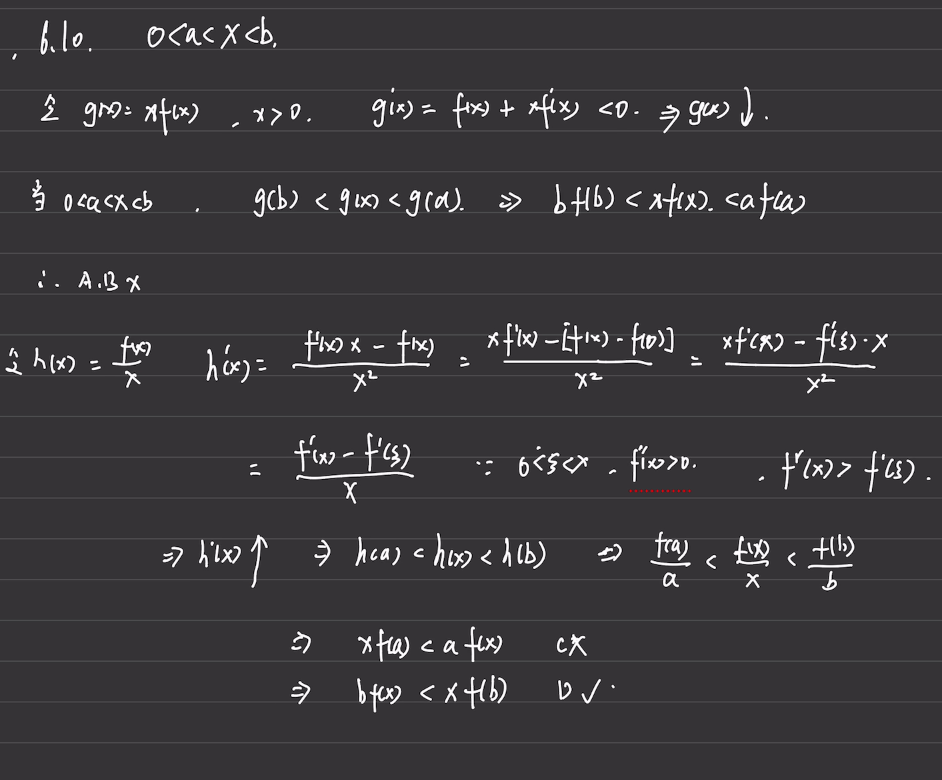 6.10. 0<a<x<b.
令 g(x)= xf(x) , x>0. g'(x) = f(x) + xf'(x) <0. ⇒ g(x)↓.
当 0<a<x<b , g(b) < g(x) < g(a). ⇒ bf(b) < xf(x). <af(a)
∴ A.B ×
令 h(x) = f(x)/x h'(x) = (f'(x)x - f(x))/x² = (xf'(x) - [f(x) - f(0)])/x² = (xf'(x) - f'(ξ)·x)/x²
= (f'(x) - f'(ξ))/x ∵ 0<ξ<x , f''(x)>0. , f'(x) > f'(ξ).
⇒ h(x)↑ ⇒ h(a) < h(x) < h(b) ⇒ f(a)/a < f(x)/x < f(b)/b
⇒ xf(a) < a f(x) C×
⇒ bf(x) < xf(b) D✓.